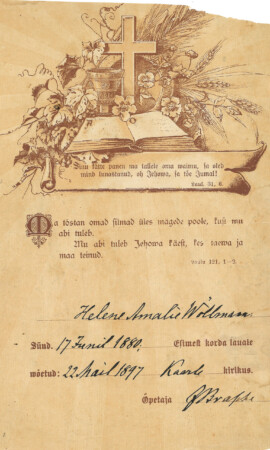 Sinu kätte panen ma tallele oma waimu, sa oled
mind lunastanud, oh Jehowa, sa tõe Jumal!
Laul. 31, 6.
Ma tõstan omad silmad üles mägede poole, kust mu
abi tuleb.
Mu abi tuleb Jehowa käest, kes taewa ja
maa teinud.
Laulu 121, 1-2.
Helene Amalie Wöllmann
Sünd. 17 Junil 1880. Esimest korda lauale
wõetud: 22 Mail 1897 Kaarle kirikus.
Õpetaja